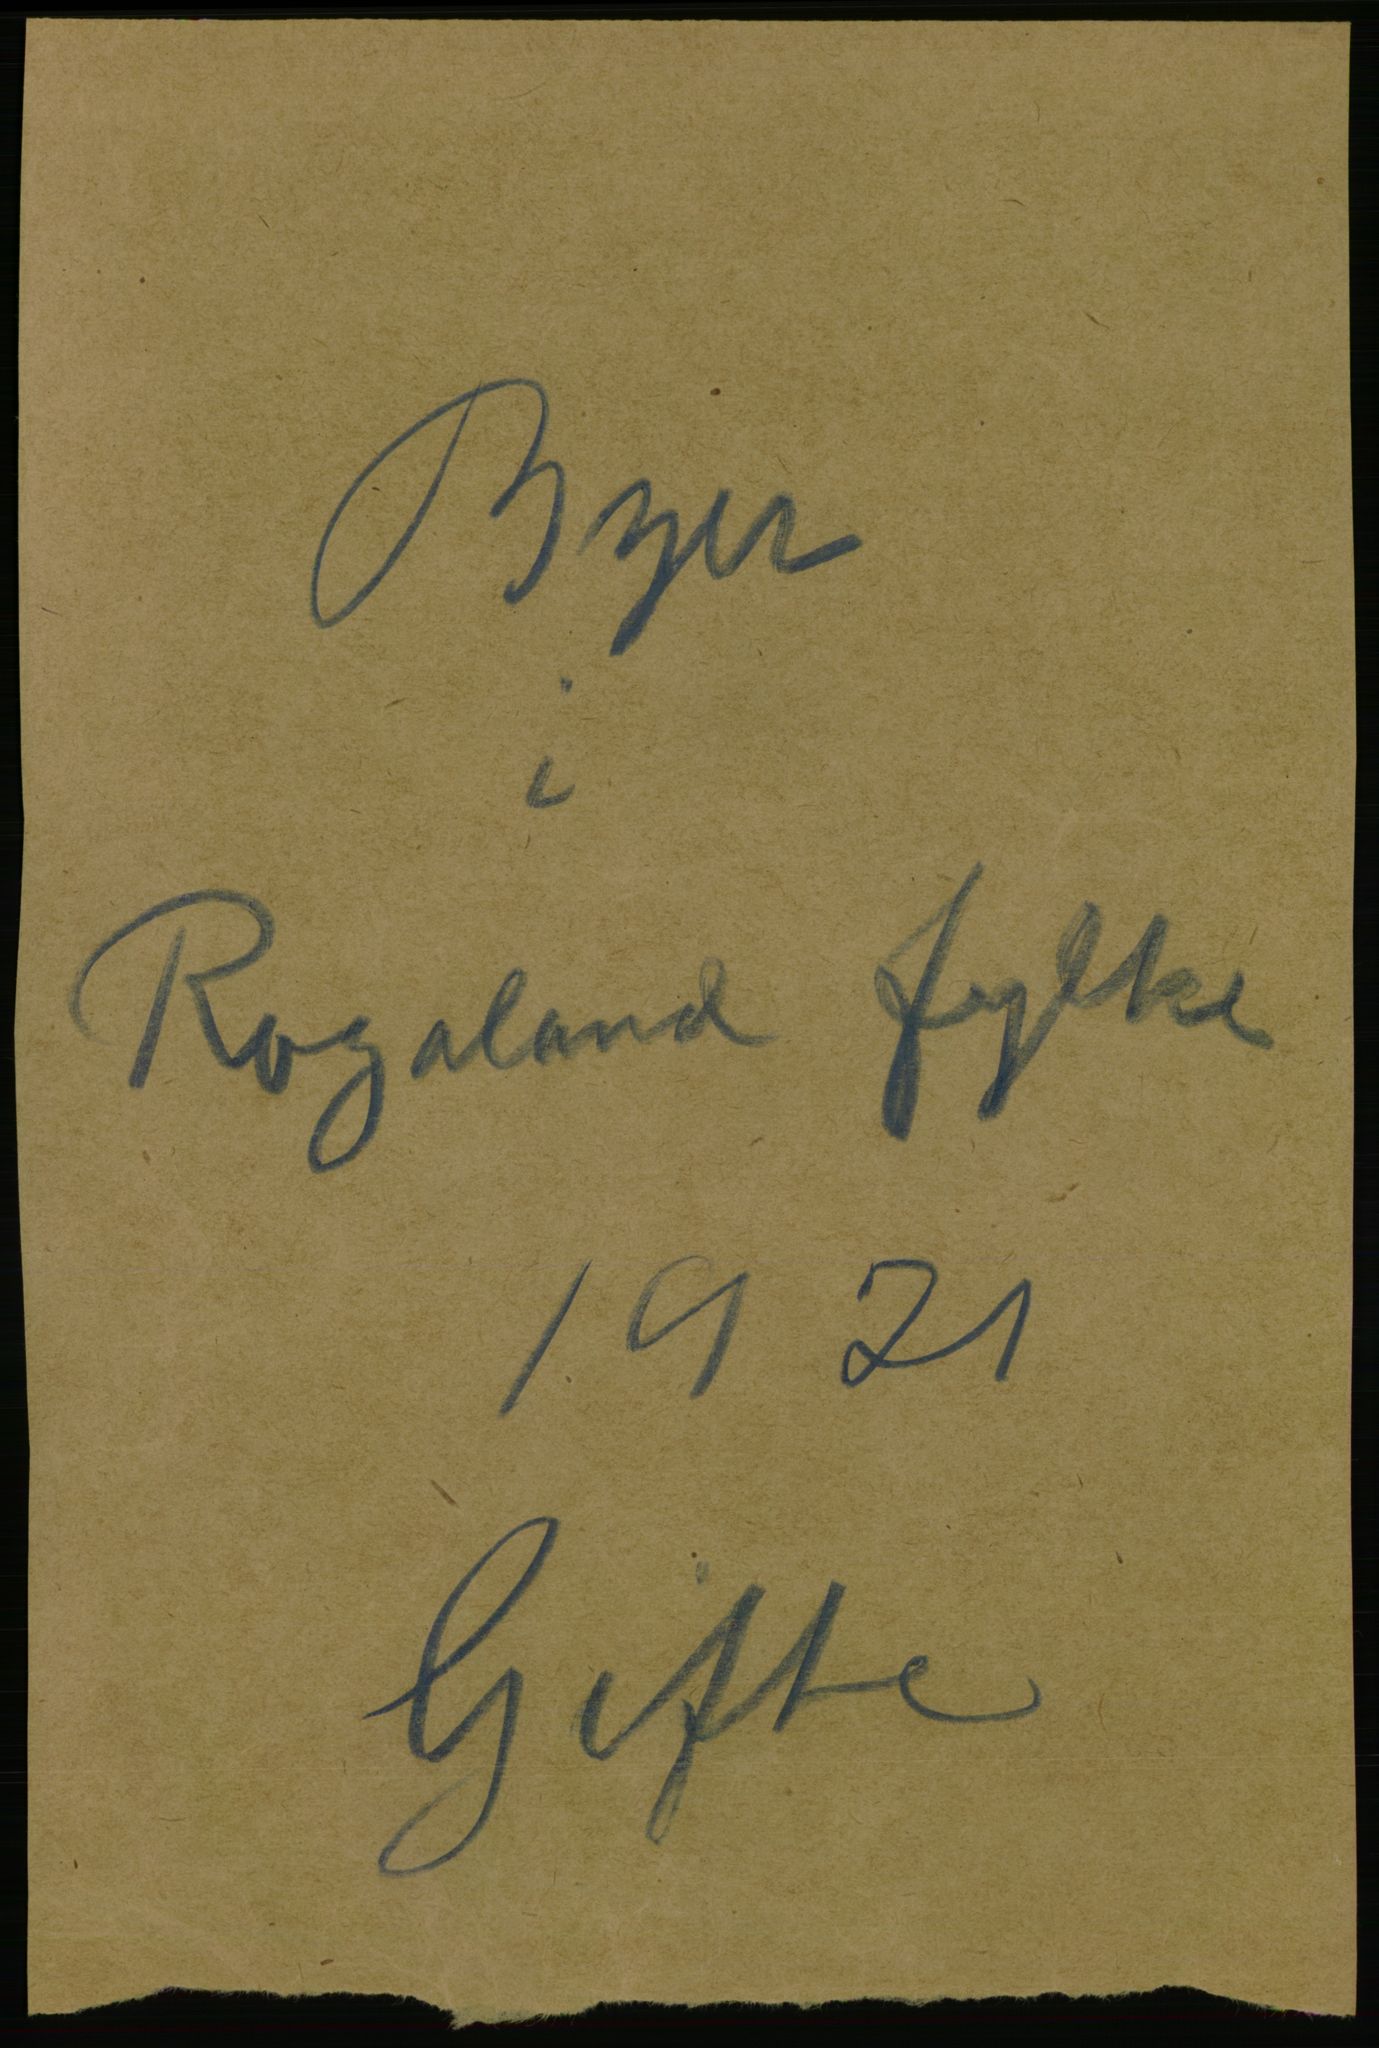 Byer
i
Rogaland fylke
1921
Gifte